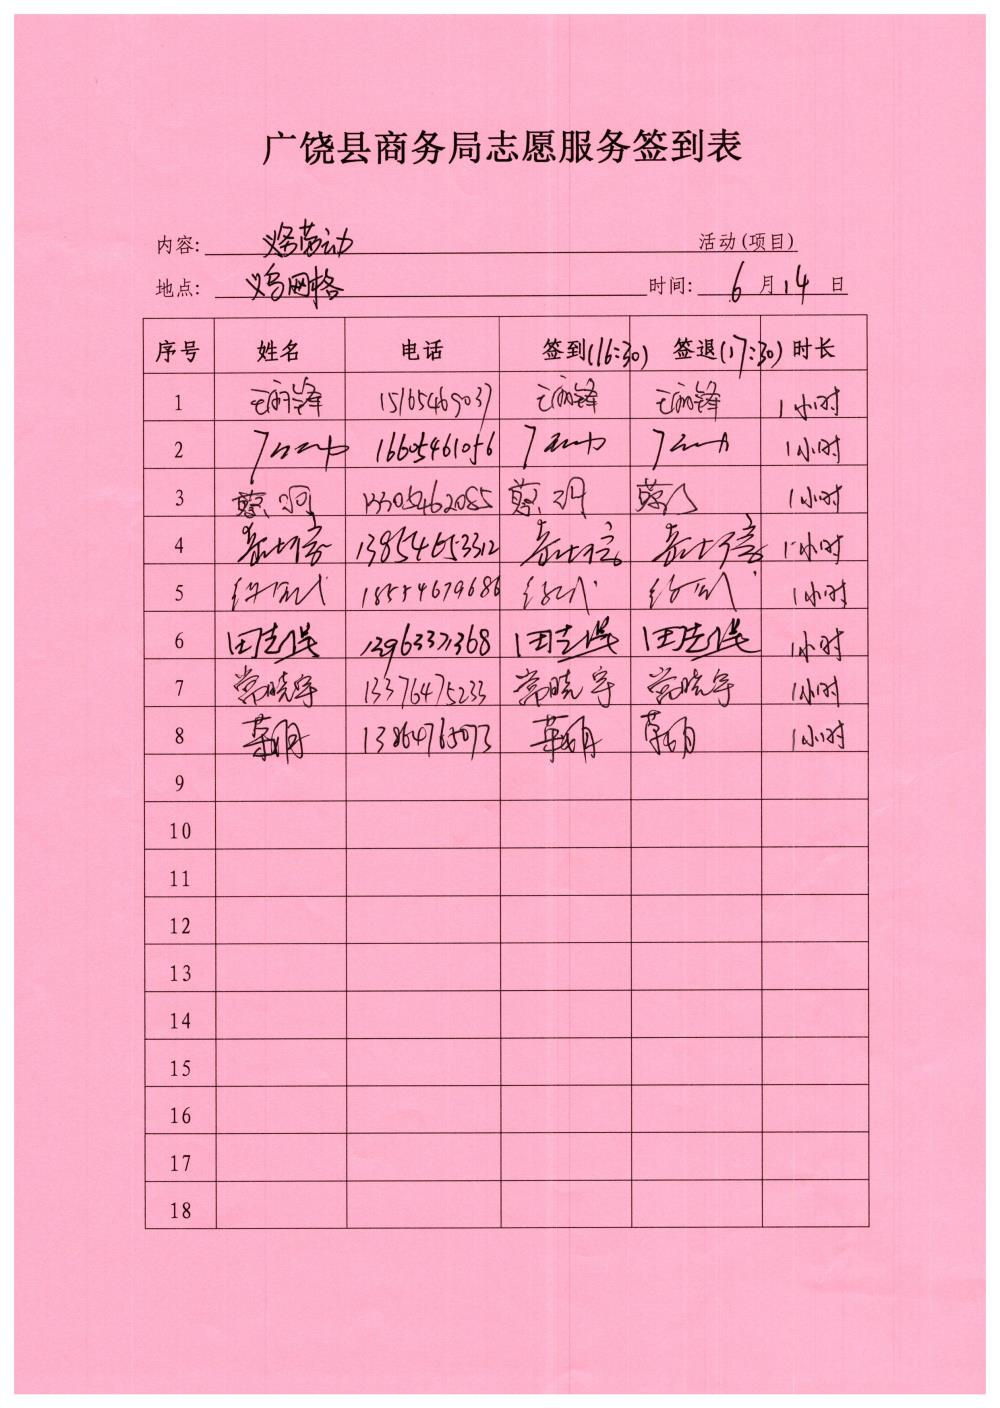 广饶县商务局志愿服务签到表
内容: 义务劳动 活动(项目)
地点: 义乌网格 时间: 6 月 14 日
序号 姓名 电话 签到(16:30) 签退(17:30) 时长
1 15165469037 1小时
2 16605461056 1小时
3 蔡 13305462085 蔡 蔡 1小时
4 13854653312 1小时
5 18554679686 1小时
6 田志 13963371368 田志 田志 1小时
7 常晓宇 13376475233 常晓宇 常晓宇 1小时
8 13864765073 1小时
9
10
11
12
13
14
15
16
17
18